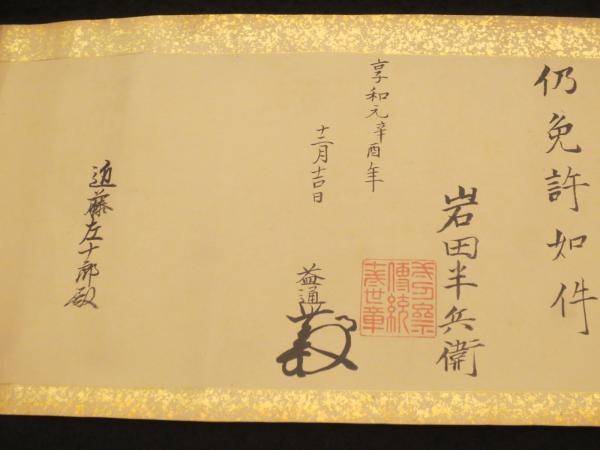 仍免許如件
岩田半兵衛
傳統
享和元辛酉年
十二月吉日
益通
近藤左十郎殿